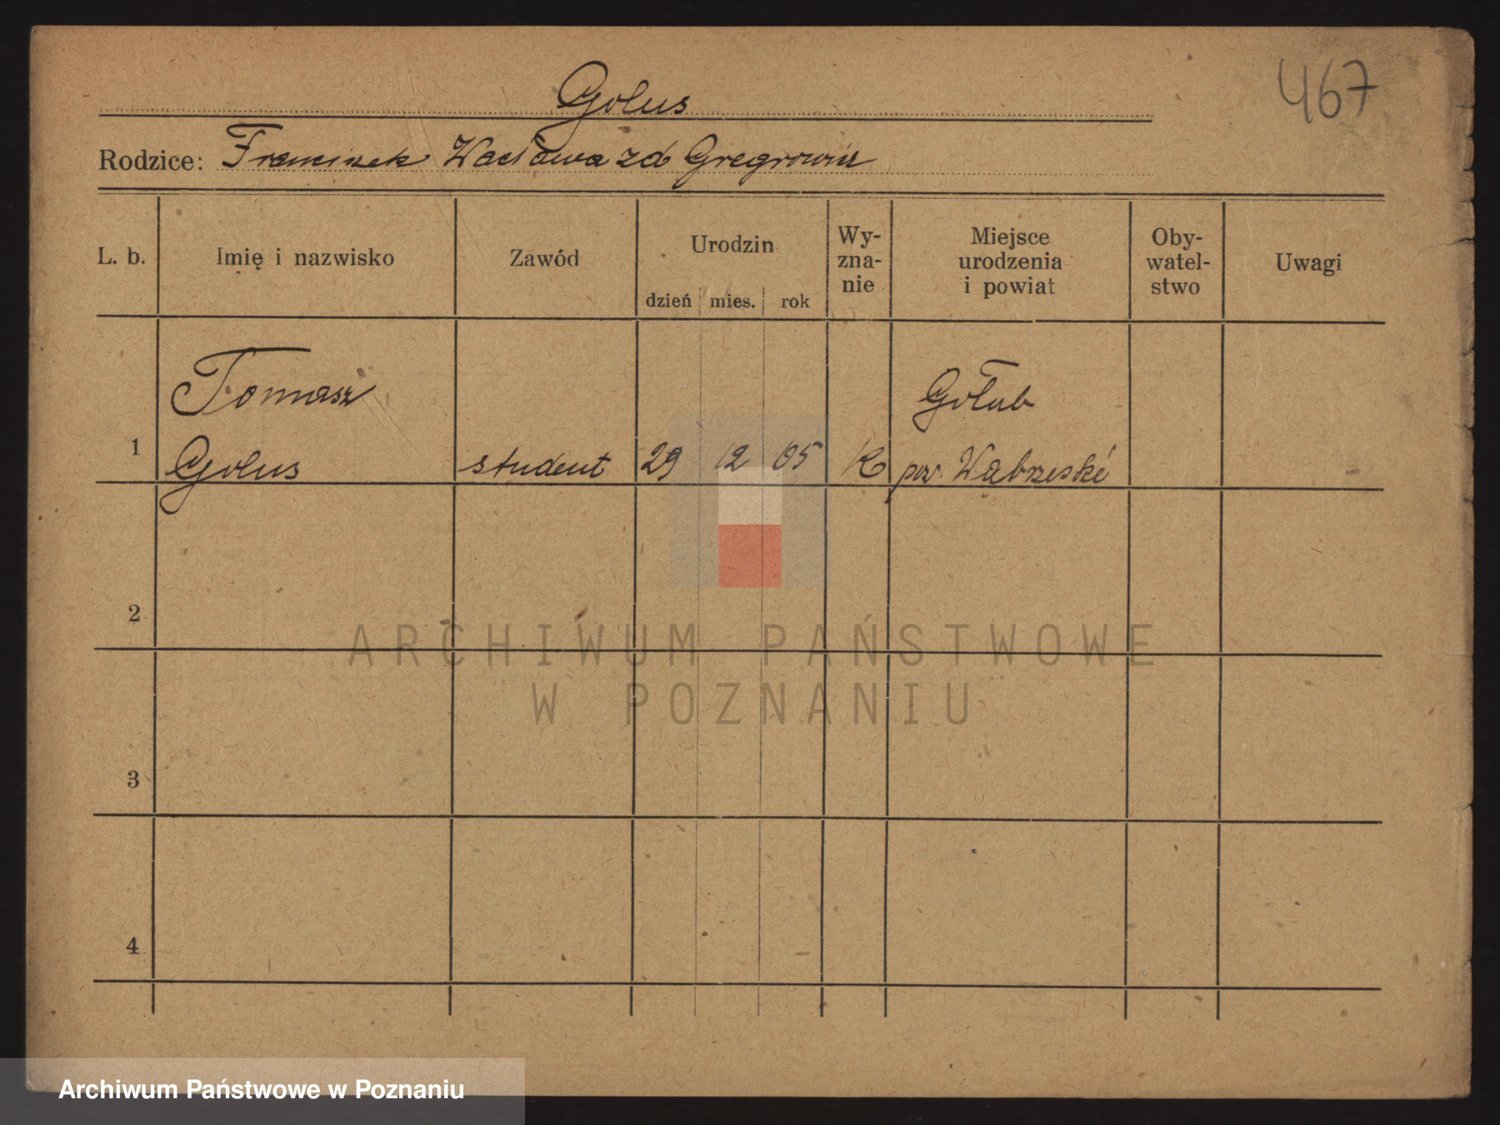 467
Golus
Rodzice: Franciszek Wacława zd Gregrowicz
L. b. Imię i nazwisko Zawód Urodzin dzień mies. rok Wy-zna-nie Miejsce urodzenia i powiat Oby-watel-stwo Uwagi
Tomasz Gołub
1 Golus student 29 12 05 K pow. Wąbrzeski
2
ARCHIWUM PAŃSTWOWE
W POZNANIU
3
4
Archiwum Państwowe w Poznaniu